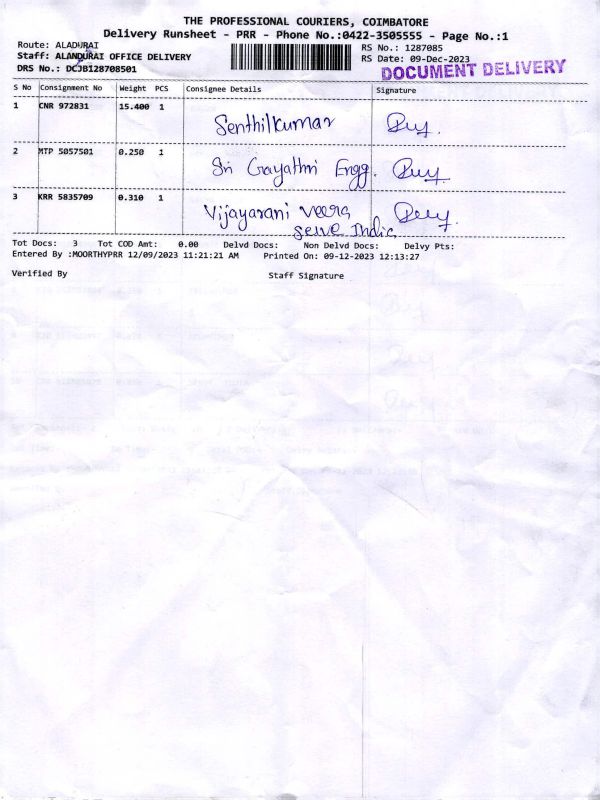 THE PROFESSIONAL COURIERS, COIMBATORE
Delivery Runsheet - PRR - Phone No.:0422-3505555 - Page No.:1
Route: ALADURAI
RS No.: 1287085
Staff: ALANDURAI OFFICE DELIVERY
RS Date: 09-Dec-2023
DRS No.: DCJB128708501
DOCUMENT DELIVERY
S No Consignment No Weight PCS Consignee Details Signature
1 CNR 972831 15.400 1 Senthilkumar
2 MTP 5057501 0.250 1 Sri Gayathri Engg.
3 KRR 5835709 0.310 1 Vijayarani Veera
Selve Indic
Tot Docs: 3 Tot COD Amt: 0.00 Delvd Docs: Non Delvd Docs: Delvy Pts:
Entered By :MOORTHYPRR 12/09/2023 11:21:21 AM Printed On: 09-12-2023 12:13:27
Verified By Staff Signature